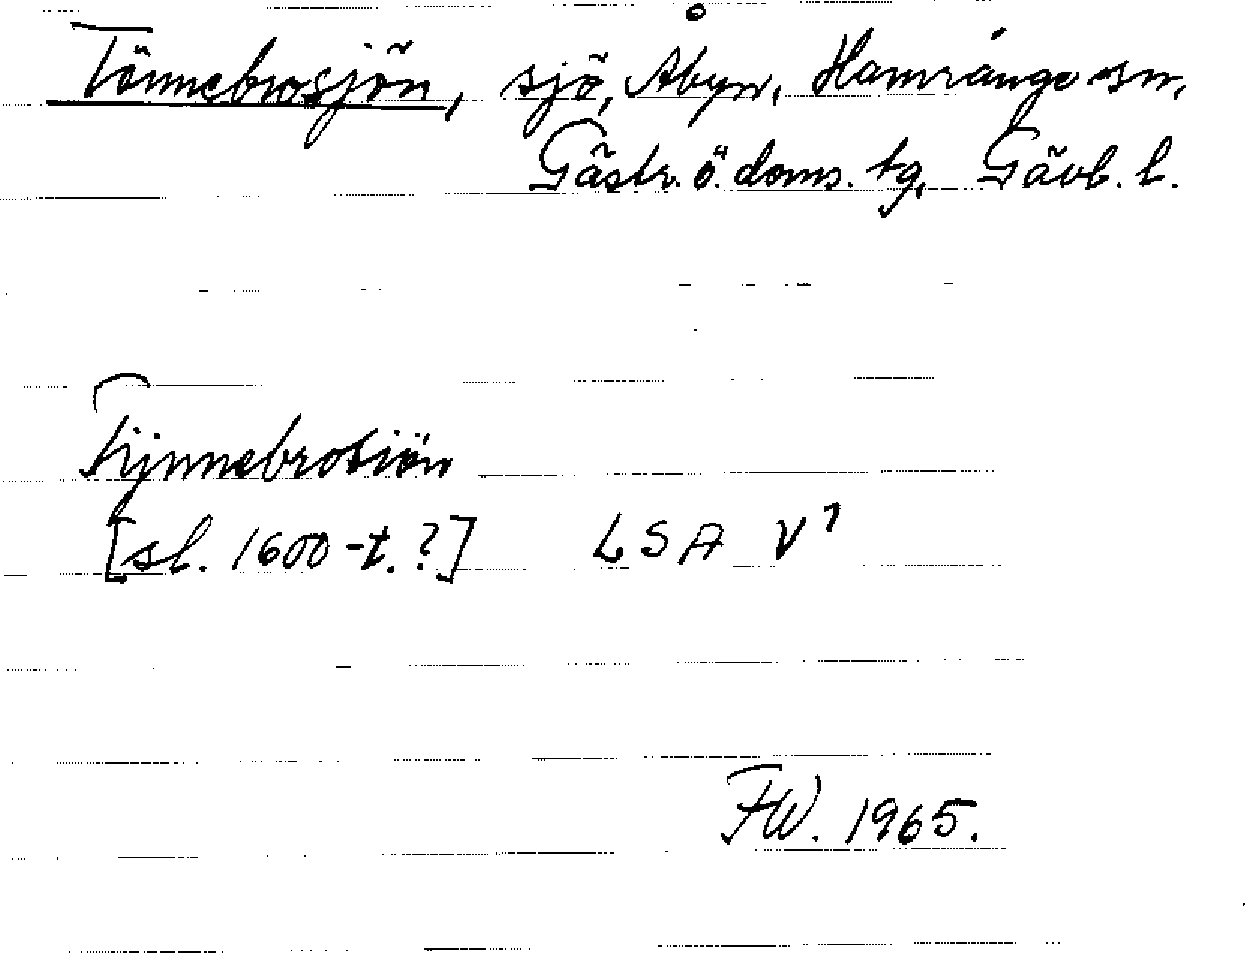 Tönnebrosjön, sjö, Åbyn, Hamrånge sn,
Gästr. ö. doms. tg, Gävl. l.
Tijnnebrosiön
[sl. 1600-t.?] LSA V1
FW. 1965.